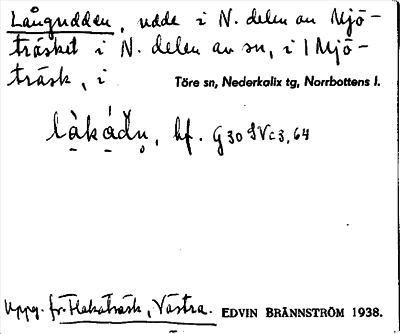 Långudden, udde i N. delen av Mjö-
träsket i N. delen av sn, i 1 Mjö-
träsk, i Töre sn, Nederkalix tg, Norrbottens l.
hf. G 30 IV c 3, 64
Uppg. fr. Västra. EDVIN BRÄNNSTRÖM 1938.